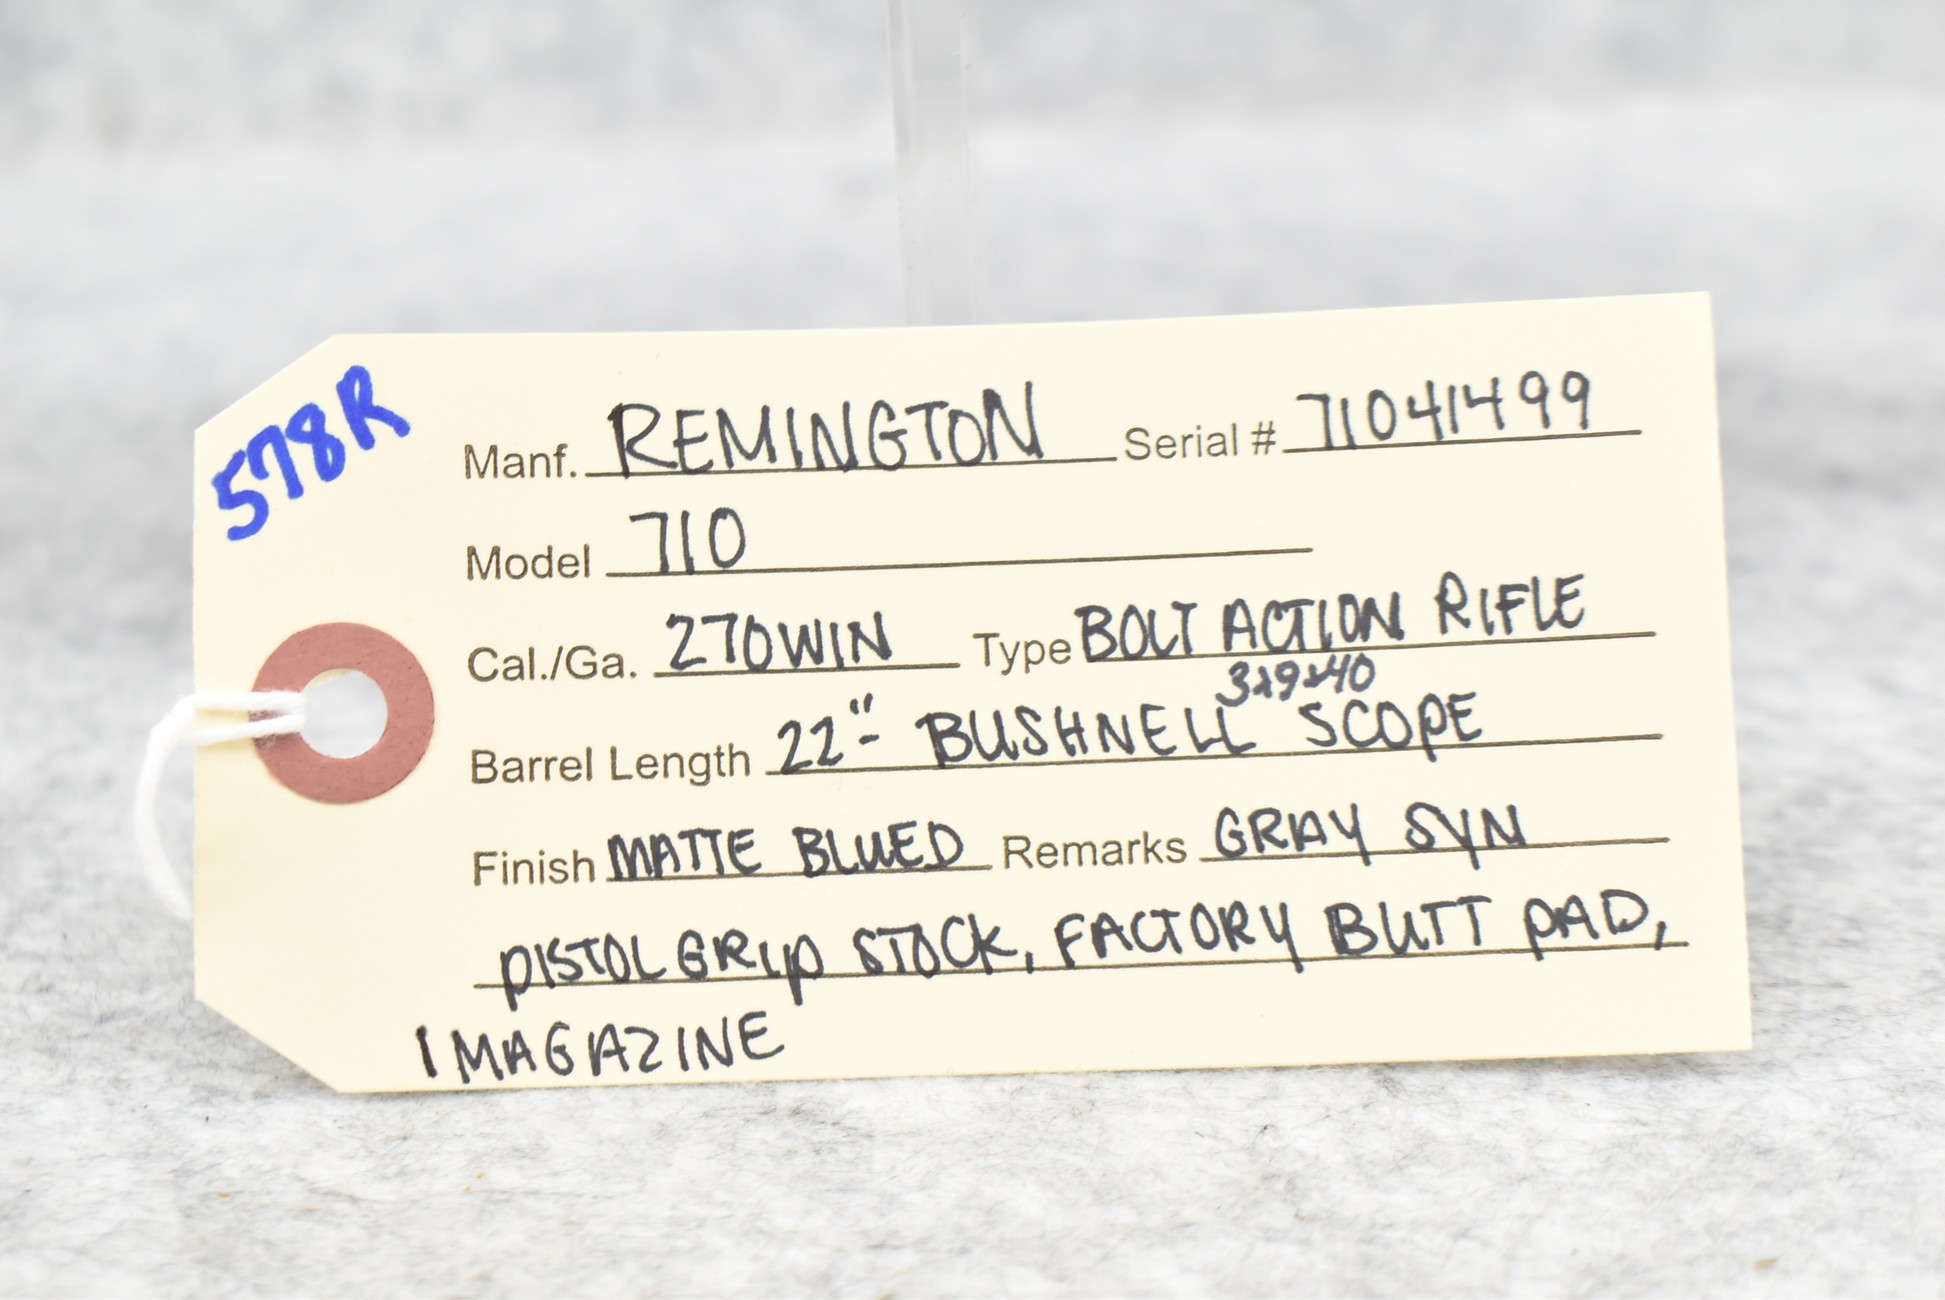 578R
Manf. REMINGTON Serial # 71041499
Model 710
Cal./Ga. 270WIN Type BOLT ACTION RIFLE
3x9x40
Barrel Length 22"- BUSHNELL SCOPE
Finish MATTE BLUED Remarks GRAY SYN
PISTOL GRIP STOCK, FACTORY BUTT PAD,
1 MAGAZINE